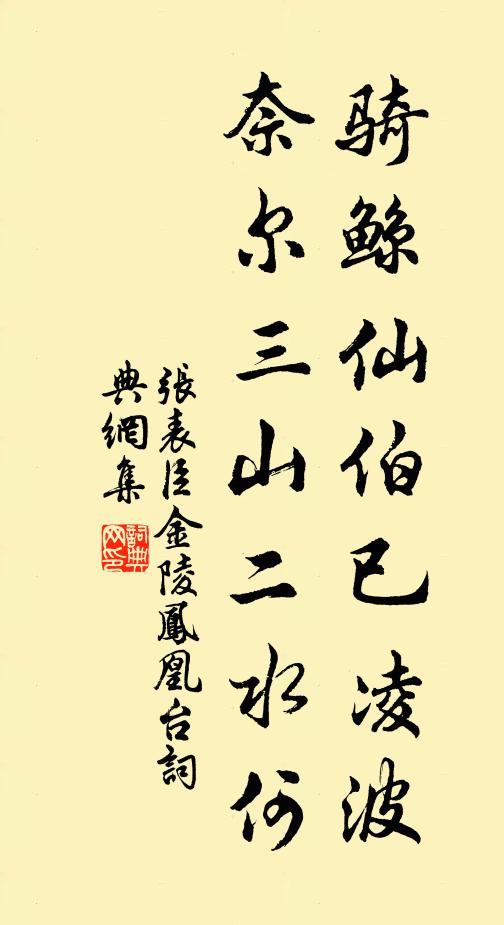 骑鲸仙伯已凌波
奈尔三山二水何
張表臣金陵鳳凰台詞
典網集
詞典網印